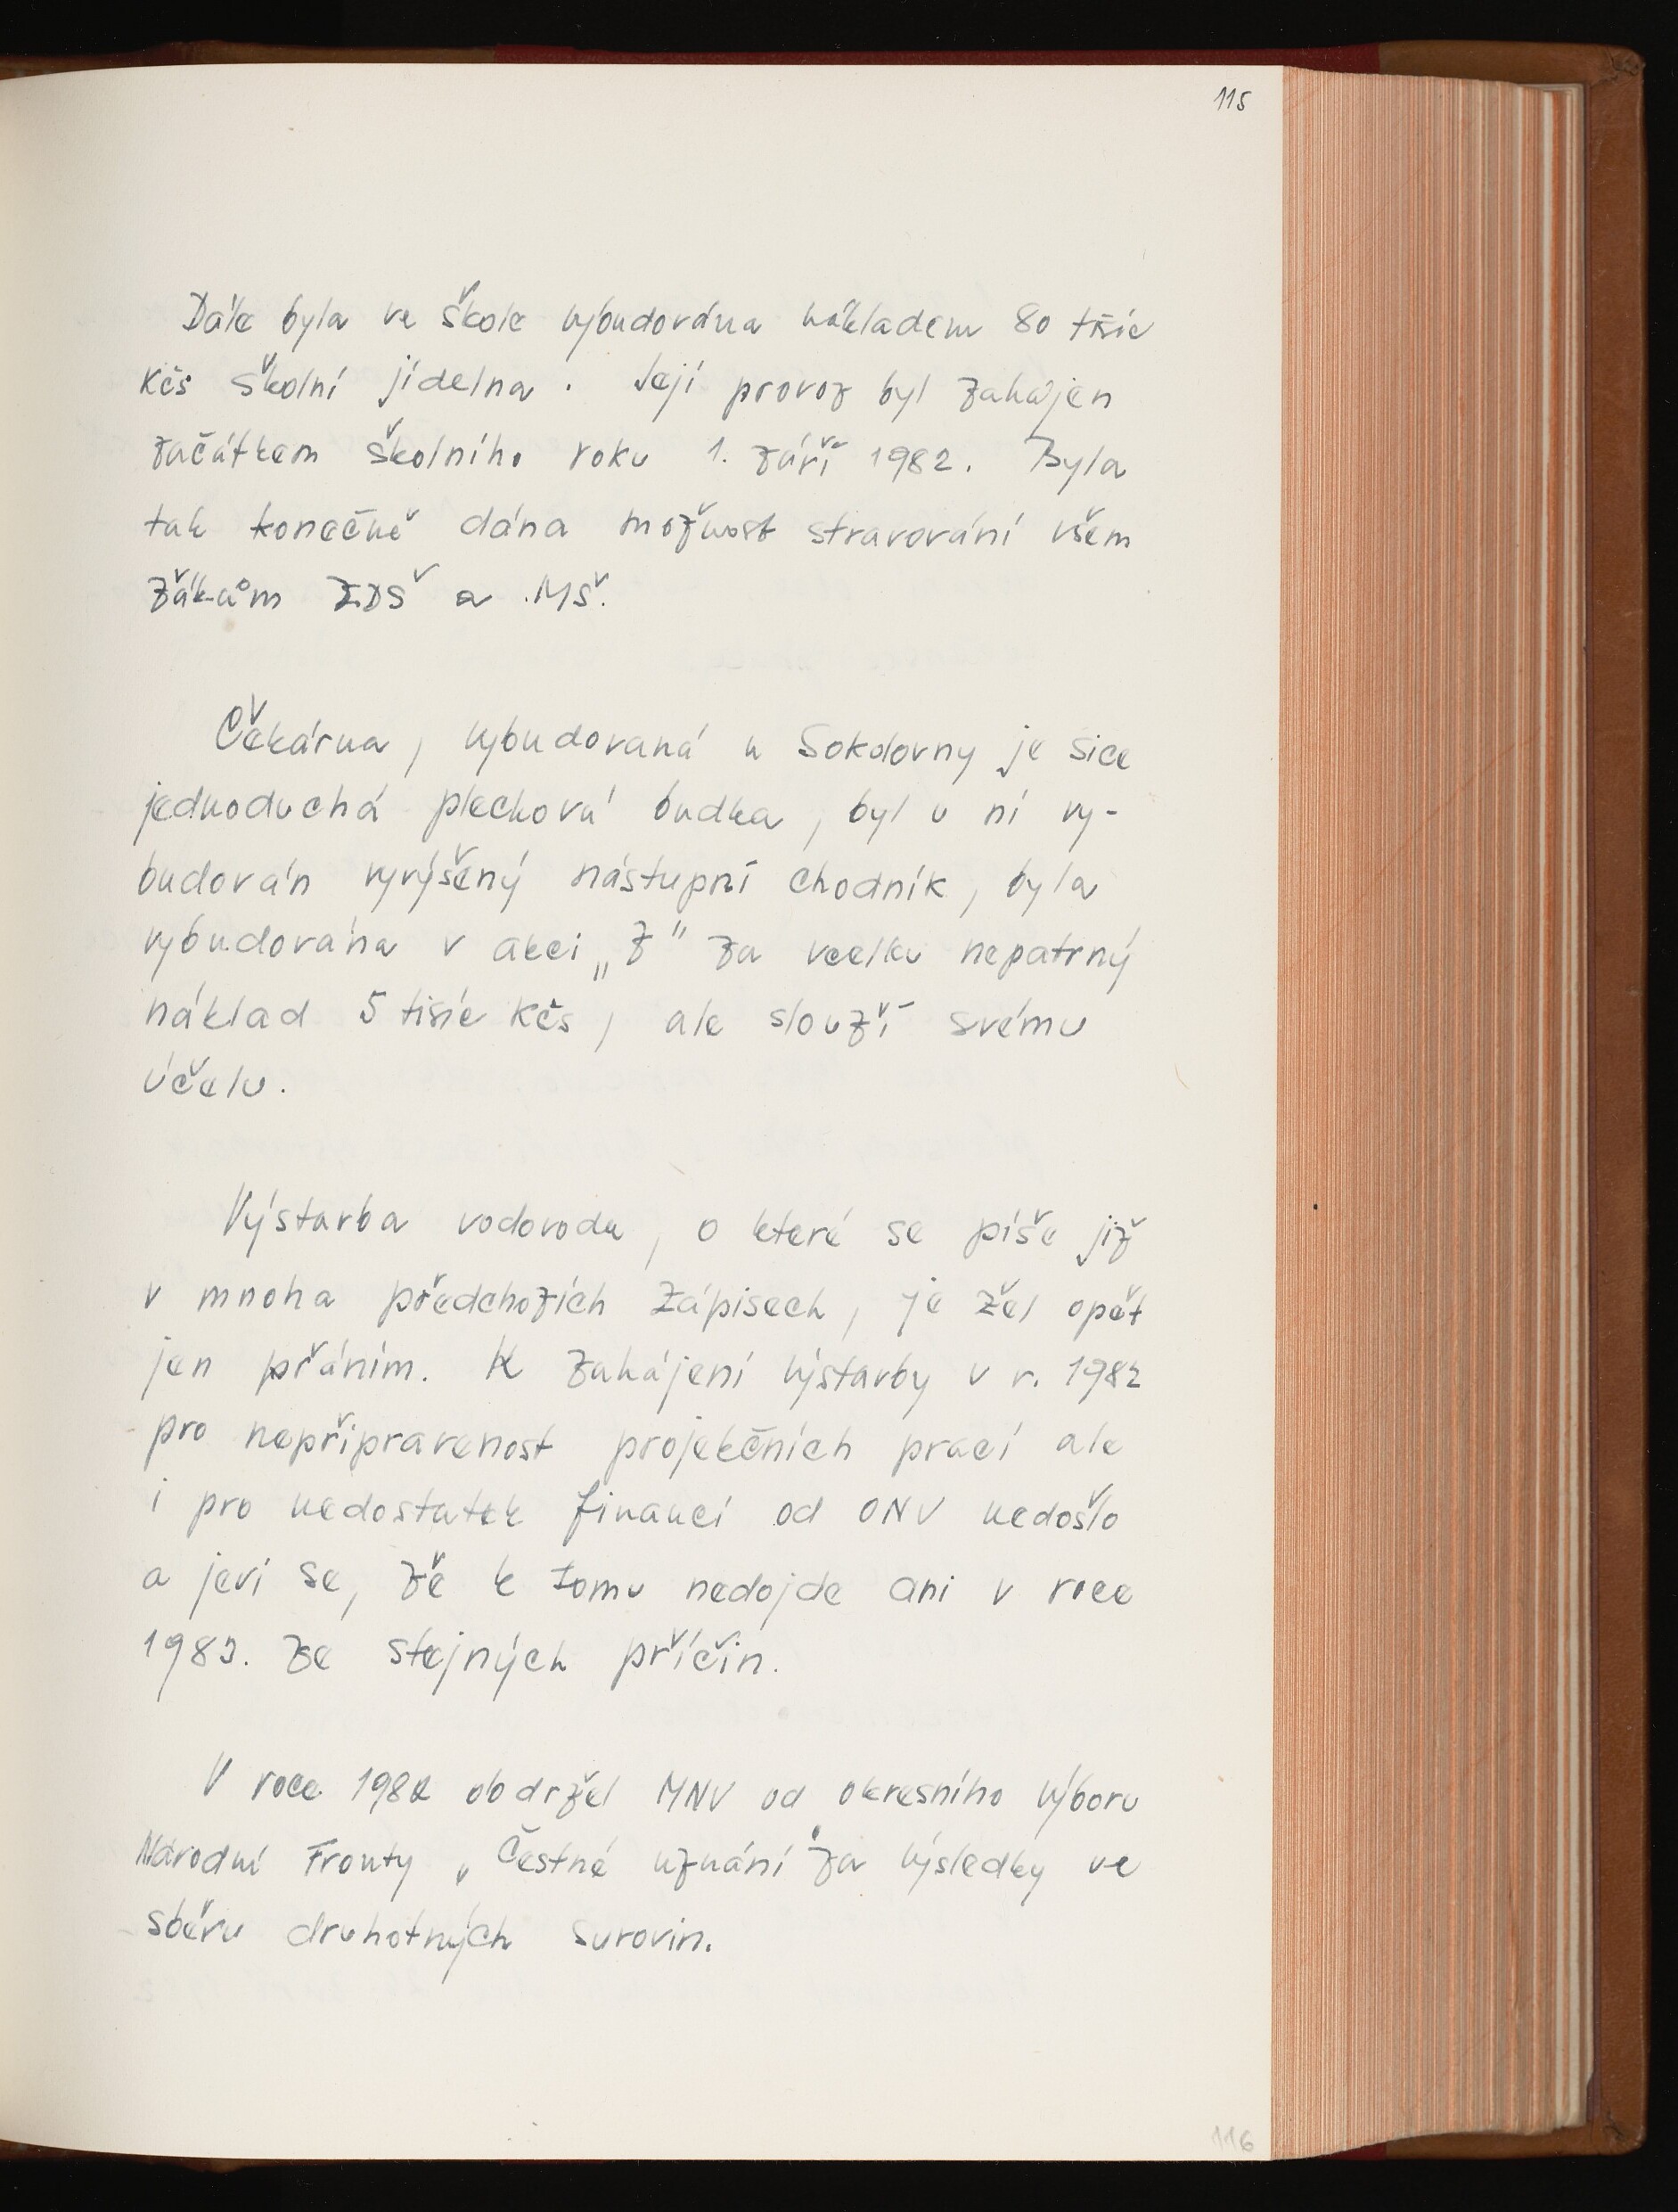 115
Dále byla ve škole vybudována nákladem 80 tisíc
Kčs školní jídelna. Její provoz byl zahájen
začátkem školního roku 1. září 1982. Byla
tak konečně dána možnost stravování všem
žákům ZDŠ a MŠ.
Čekárna, vybudovaná u Sokolovny je sice
jednoduchá plechová budka, byl u ní vy-
budován vyvýšený nástupní chodník, byla
vybudována v akci „Z" za vcelku nepatrný
náklad 5 tisíc Kčs, ale slouží svému
účelu.
Výstavba vodovodu, o které se píše již
v mnoha předchozích zápisech, je žel opět
jen přáním. K zahájení výstavby v r. 1982
pro nepřipravenost projekčních prací ale
i pro nedostatek financí od ONV nedošlo
a jeví se, že k tomu nedojde ani v roce
1983. ze stejných příčin.
V roce 1982 obdržel MNV od okresního výboru
Národní Fronty „Čestné uznání" za výsledky ve
sběru druhotných surovin.
116